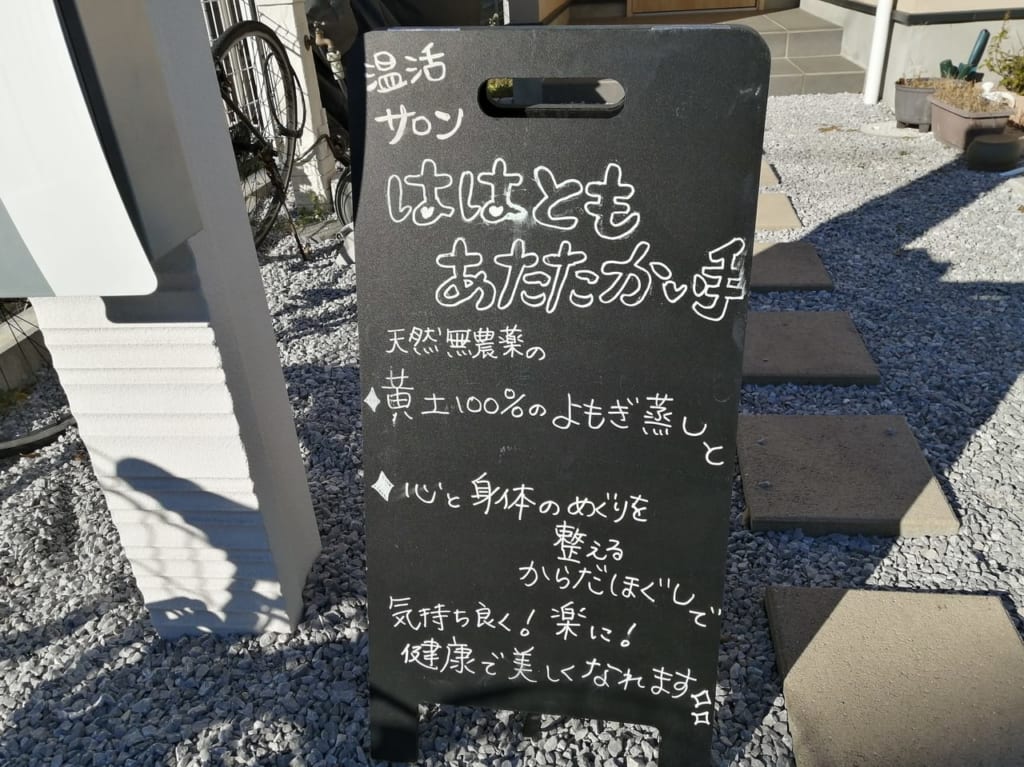 温活
サロン
ははとも
あたたかい手
天然無農薬の
黄土100%のよもぎ蒸しと
心と身体のめぐりを
整える
からだほぐしで
気持ち良く!楽に!
健康で美しくなれます